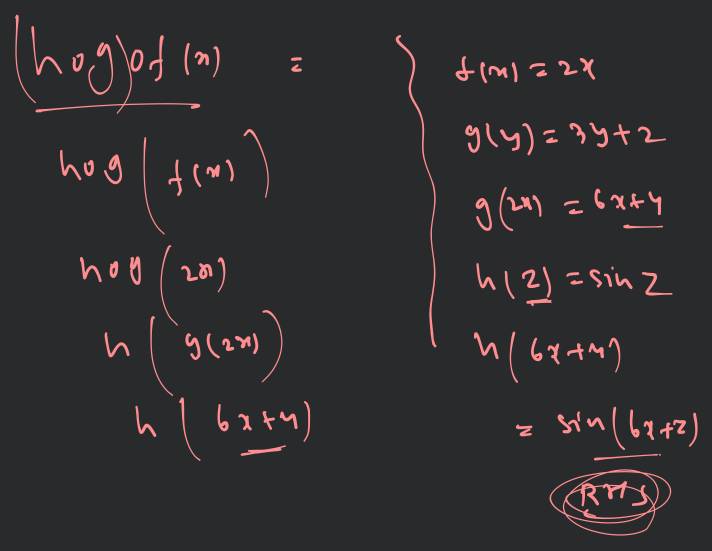 (hog)of(x) =
hog(f(x))
hog(2x)
h(g(2x))
h(6x+4)
f(x) = 2x
g(y) = 3y+2
g(2x) = 6x+4
h(z) = sin z
h(6x+4)
= sin(6x+2)
RHS